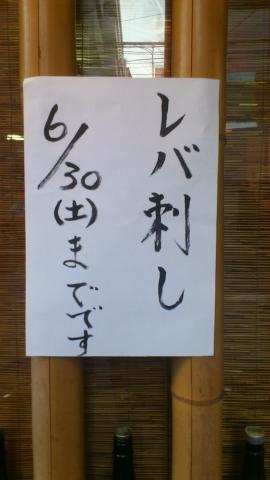 レバ刺し
6/30
(土)までです